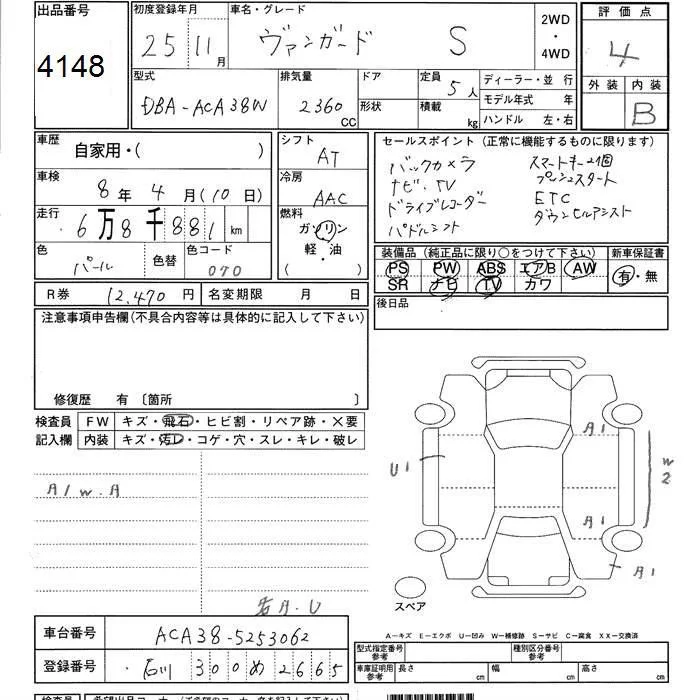 出品番号 初度登録年月 車名・グレード 2WD・4WD 評価点
4148 25 11月 ヴァンガード S 4
型式 排気量 ドア 定員 5人 ディーラー・並行 外装 内装
DBA-ACA38W 2360cc 形状 積載 kg モデル年式 年 B
ハンドル 左・右
車歴 自家用・( ) シフト AT セールスポイント (正常に機能するものに限ります)
車検 8年4月(10日) 冷房 AAC バックカメラ スマートキー2個
ナビ、TV プッシュスタート
走行 6万8千881km 燃料 ガソリン 軽・油 ( ) ドライブレコーダー ETC
パドルシフト ダウンヒルアシスト
色 パール 色替 色コード 070 装備品 (純正品に限り○をつけて下さい) 新車保証書
PS PW ABS エアB AW 有・無
SR ナビ TV カワ
R券 12,470円 名変期限 月 日 後日品
注意事項申告欄(不具合内容等は具体的に記入して下さい)
修復歴 有 〔箇所 〕
検査員 FW キズ・飛石・ヒビ割・リペア跡・×要
記入欄 内装 キズ・汚レ・コゲ・穴・スレ・キレ・破レ
U1
W2
スペア
車台番号 ACA38-5253062
A−キズ E−エクボ U−凹み W−補修跡 S−サビ C−腐食 XX−交換済
登録番号 石川 300 め 2665
型式指定番号 参考 種別区分番号 参考
車庫証明用 参考 長さ cm 幅 cm 高さ cm